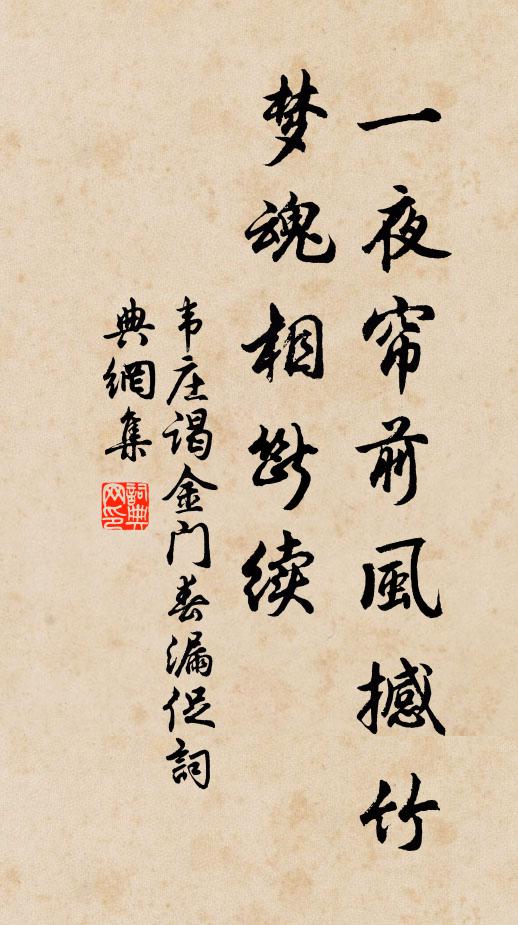 一夜帘前風撼竹
梦魂相断续
韦庄谒金门春漏促詞
典網集
詞典网印